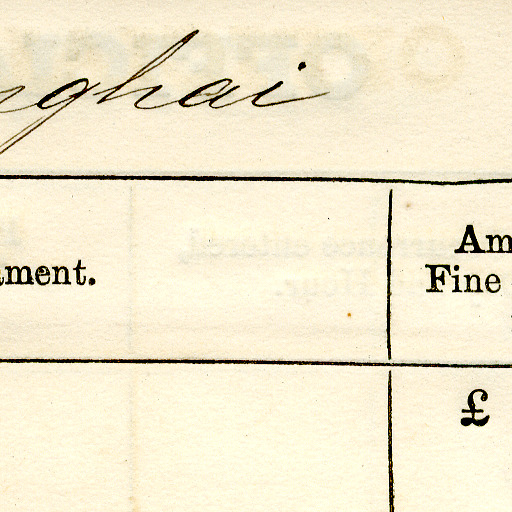 nghai
ament.
Am
Fine
£